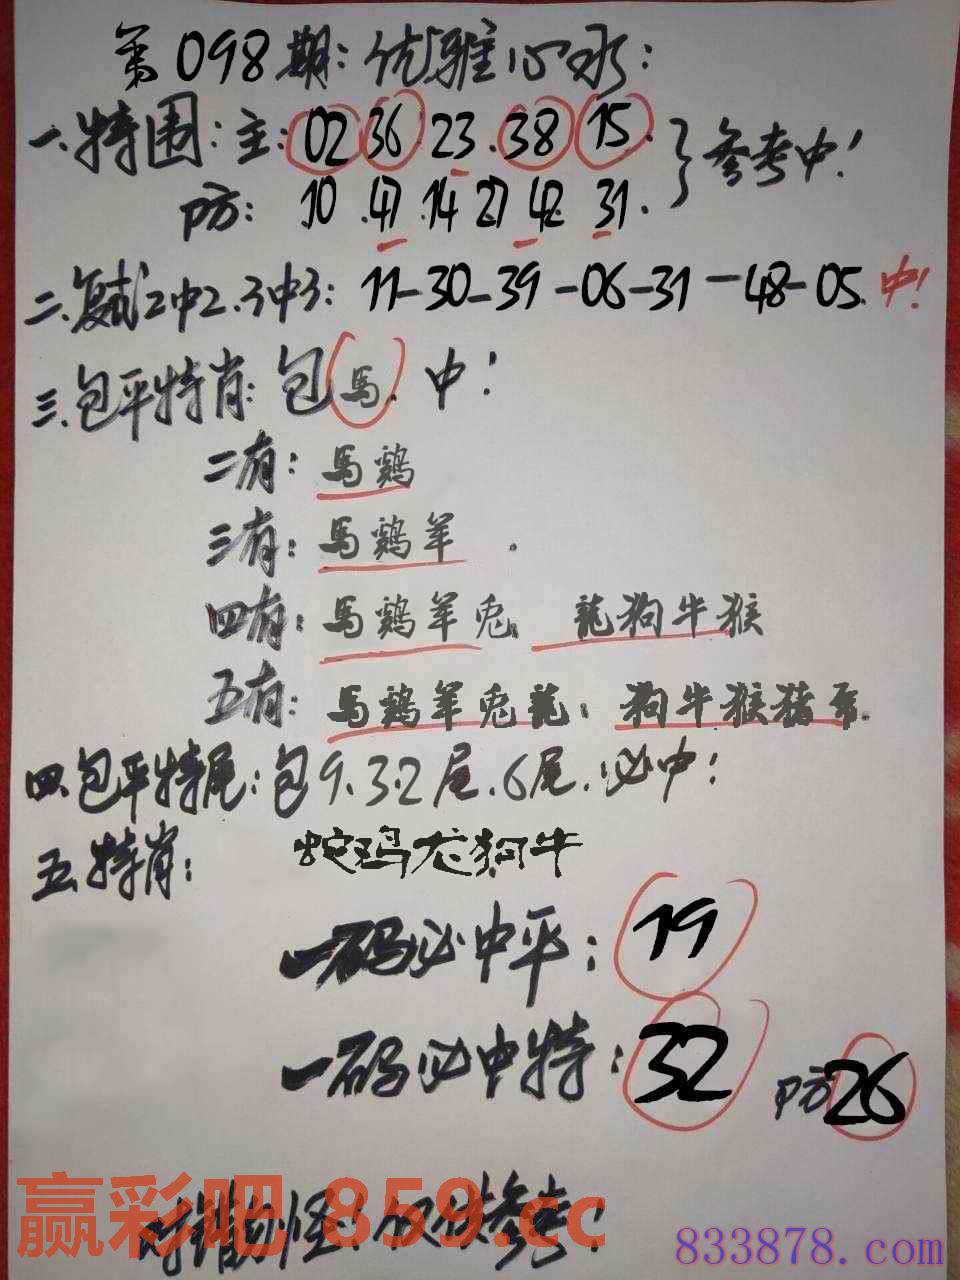 第098期:优雅心水:
一.特围:主:02 36 23.38 15.}参考中!
防: 10.47.14 27 42 31.
二.复式2中2.3中3: 11-30-39-06-31-48-05.中!
三.包平特肖:包馬.中!
二有:馬鷄
三有:馬鷄羊.
四有:馬鷄羊兎. 龍狗牛猴
五有:馬鷄羊兎龍: 狗牛猴猪
四.包平特尾:包9.3.2尾.6尾.必中!
五.特肖: 蛇鸡龙狗牛
一码必中平:19
一码必中特:32 防26
对错别怪:仅供参考!
赢彩吧 859.cc
833878.com